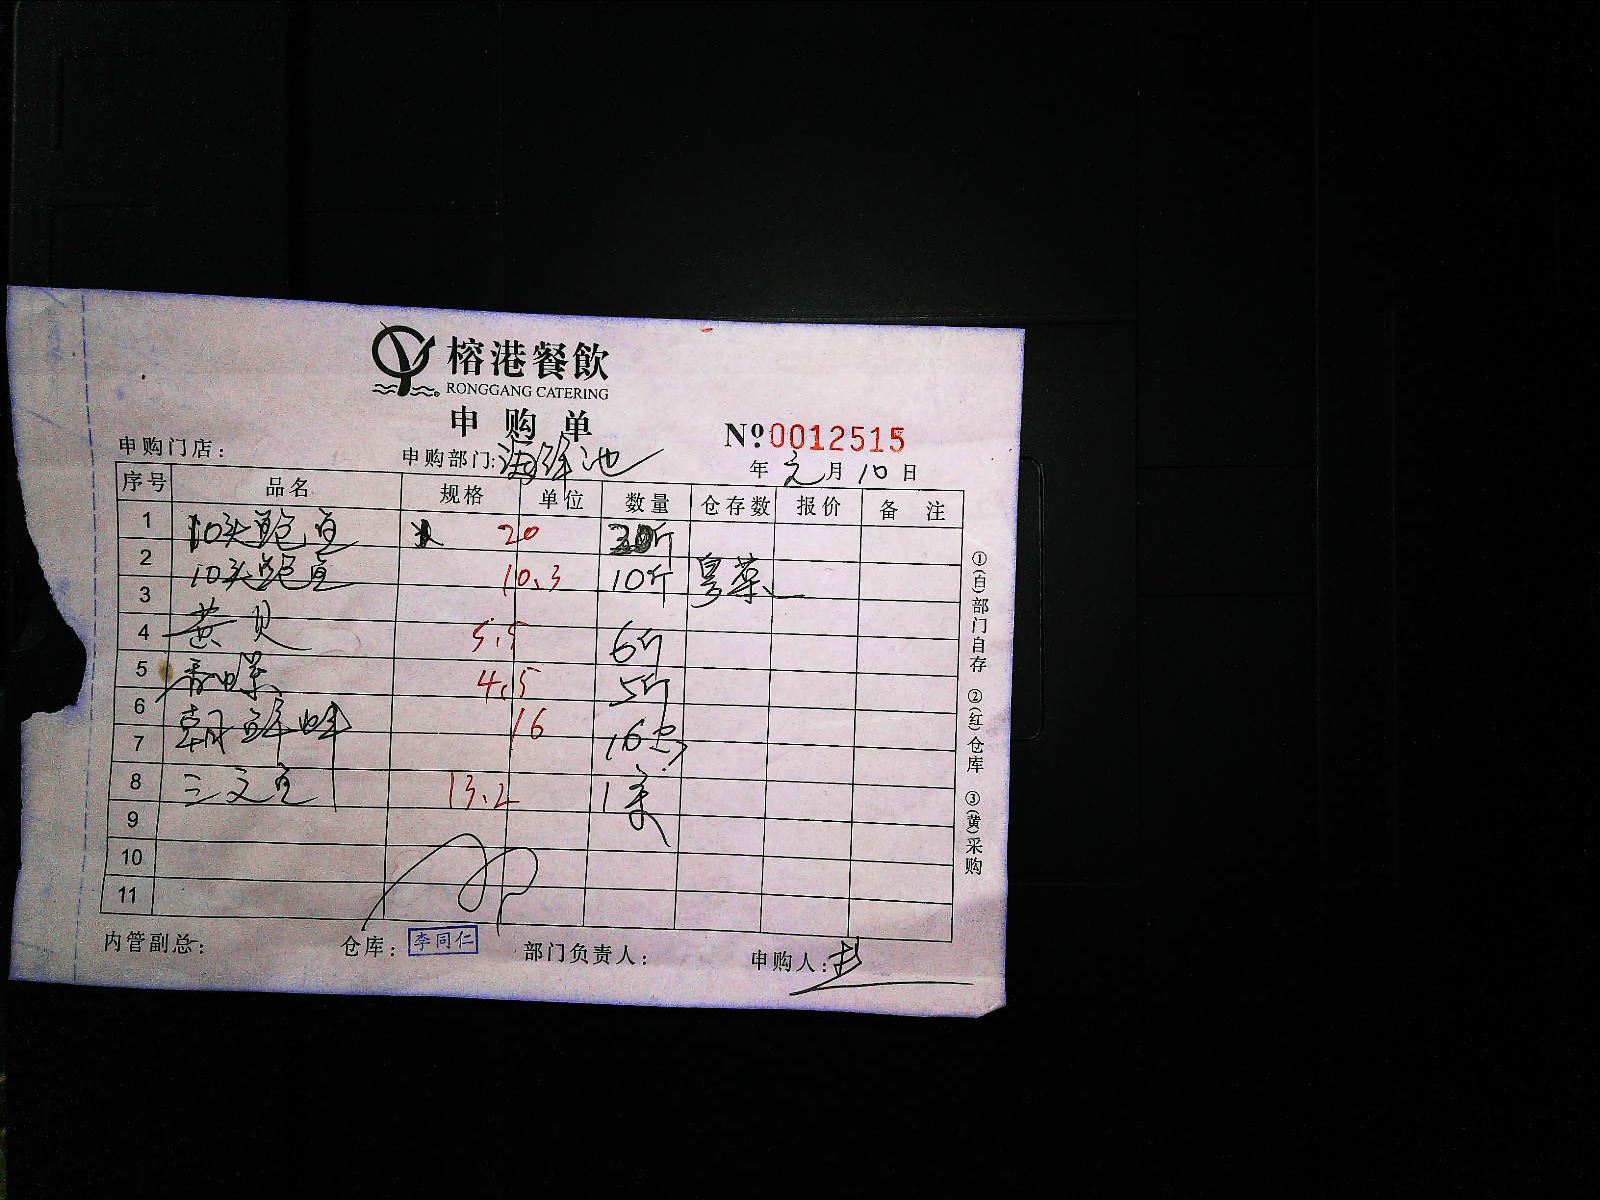 榕港餐飲
RONGGANG CATERING
申购单
№0012515
申购门店: 申购部门:海鲜池 年 元月10日
序号 品名 规格 单位 数量 仓存数 报价 备注
1 10头鲍鱼 20 斤
2 10头鲍鱼 10.3 10斤 粤菜
3
4 黄贝 5.5 6斤
5 4.5 5斤
6 朝鲜蚌 16 16
7
8 三文鱼 13.2 1条
9
10
11
①(白)部门自存 ②(红)仓库 ③(黄)采购
内管副总: 仓库: 李同仁 部门负责人: 申购人: